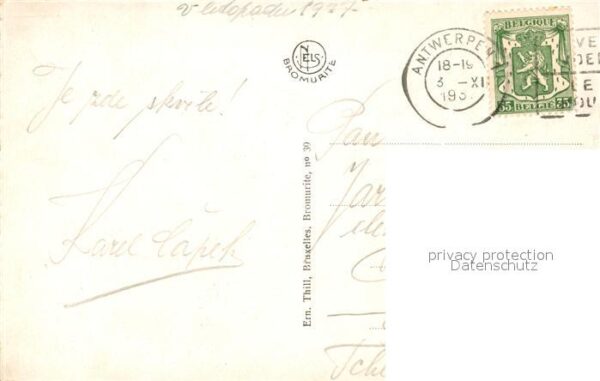 v listopadu 1937.
NELS
BROMURITE
Je zde skvěle!
Karel Čapek
Ern. Thill, Bruxelles. Bromurite, no 39
ANTWERPEN
18-19
3 -XI
193
BELGIQUE
35 BELGIË 35
Pan
Jar
Tche
privacy protection
Datenschutz